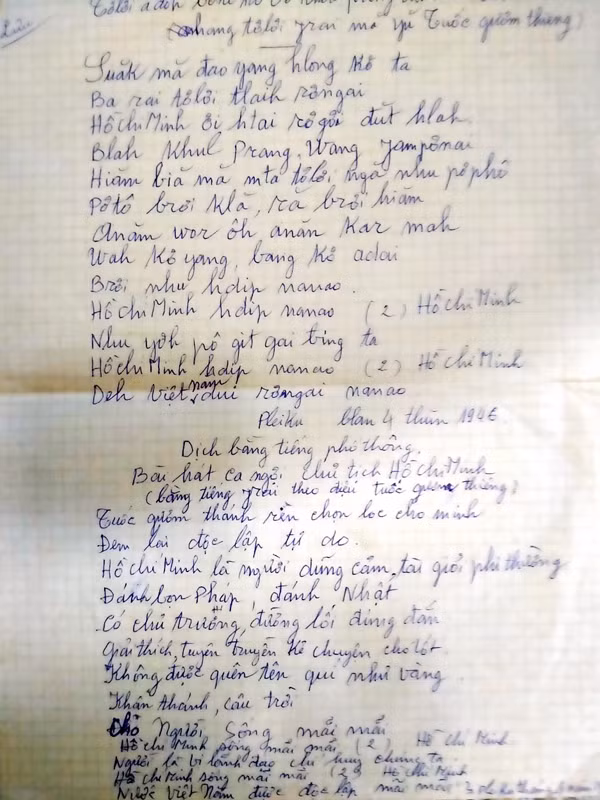 Lưu
tơlơi jrai mă yŭ Tuốc gươm thiêng)
Suăk mă đao yang hlong kơ ta
Ba rai tơlơi tlaih rơngai
Hồ Chí Minh ơi htai rơgơi đưt hlah
Blah khul Prang, Wang Jampônai
Hiăm biă mă mta tơlơi ngă nhu pơphô
Pơtô brơi klă, ră brơi hiăm
Anăm wor ôh anăn kar mah
Wah kơ yang, bang kơ adai
Brơi nhu hdip nanao.
Hồ Chí Minh hdip nanao (2) Hồ Chí Minh
Nhu yơh pô git gai bing ta
Hồ Chí Minh hdip nanao (2) Hồ Chí Minh
Deh Việt nam dưi rơngai nanao
Pleiku blan 4 thun 1946.
Dịch bằng tiếng phổ thông.
Bài hát ca ngợi chủ tịch Hồ Chí Minh
(bằng tiếng jrai theo điệu tuốc gươm thiêng)
Tuốc gươm thánh rèn chọn lọc cho mình
Đem lại độc lập tự do.
Hồ Chí Minh là người dũng cảm, tài giỏi phi thường
Đánh bọn Pháp, đánh Nhật
Có chủ trương, đường lối đúng đắn
Giải thích, tuyên truyền kể chuyện cho tốt
Không được quên tên quí như vàng.
Khấn thánh, cầu trời
Cho Người sống mãi mãi
Hồ Chí Minh sống mãi mãi (2) Hồ Chí Minh
Người là vị lãnh đạo chỉ huy chúng ta
Hồ Chí Minh sống mãi mãi (2) Hồ Chí Minh
Nước Việt Nam được độc lập mãi mãi